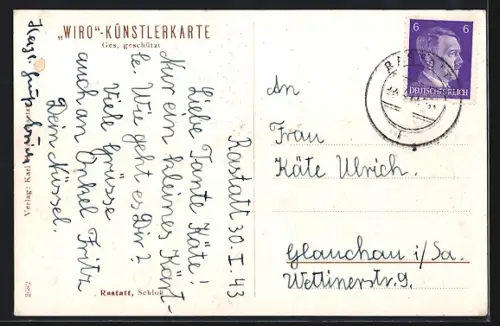 „WIRO"-KÜNSTLERKARTE
Ges. geschützt
Rastatt 30. I. 43
Liebe Tante Käte!
Nur ein kleines Kärt-
le. Wie geht es Dir?
Viele Grüsse
auch an Onkel Fritz
Dein Nüssel.
Herzl.
An
Frau
Käte Ulrich.
Glauchau i/Sa.
Wettinerstr. 9.
6 6
DEUTSCHES REICH
Verlag: Karl
2082
Rastatt, Schloß